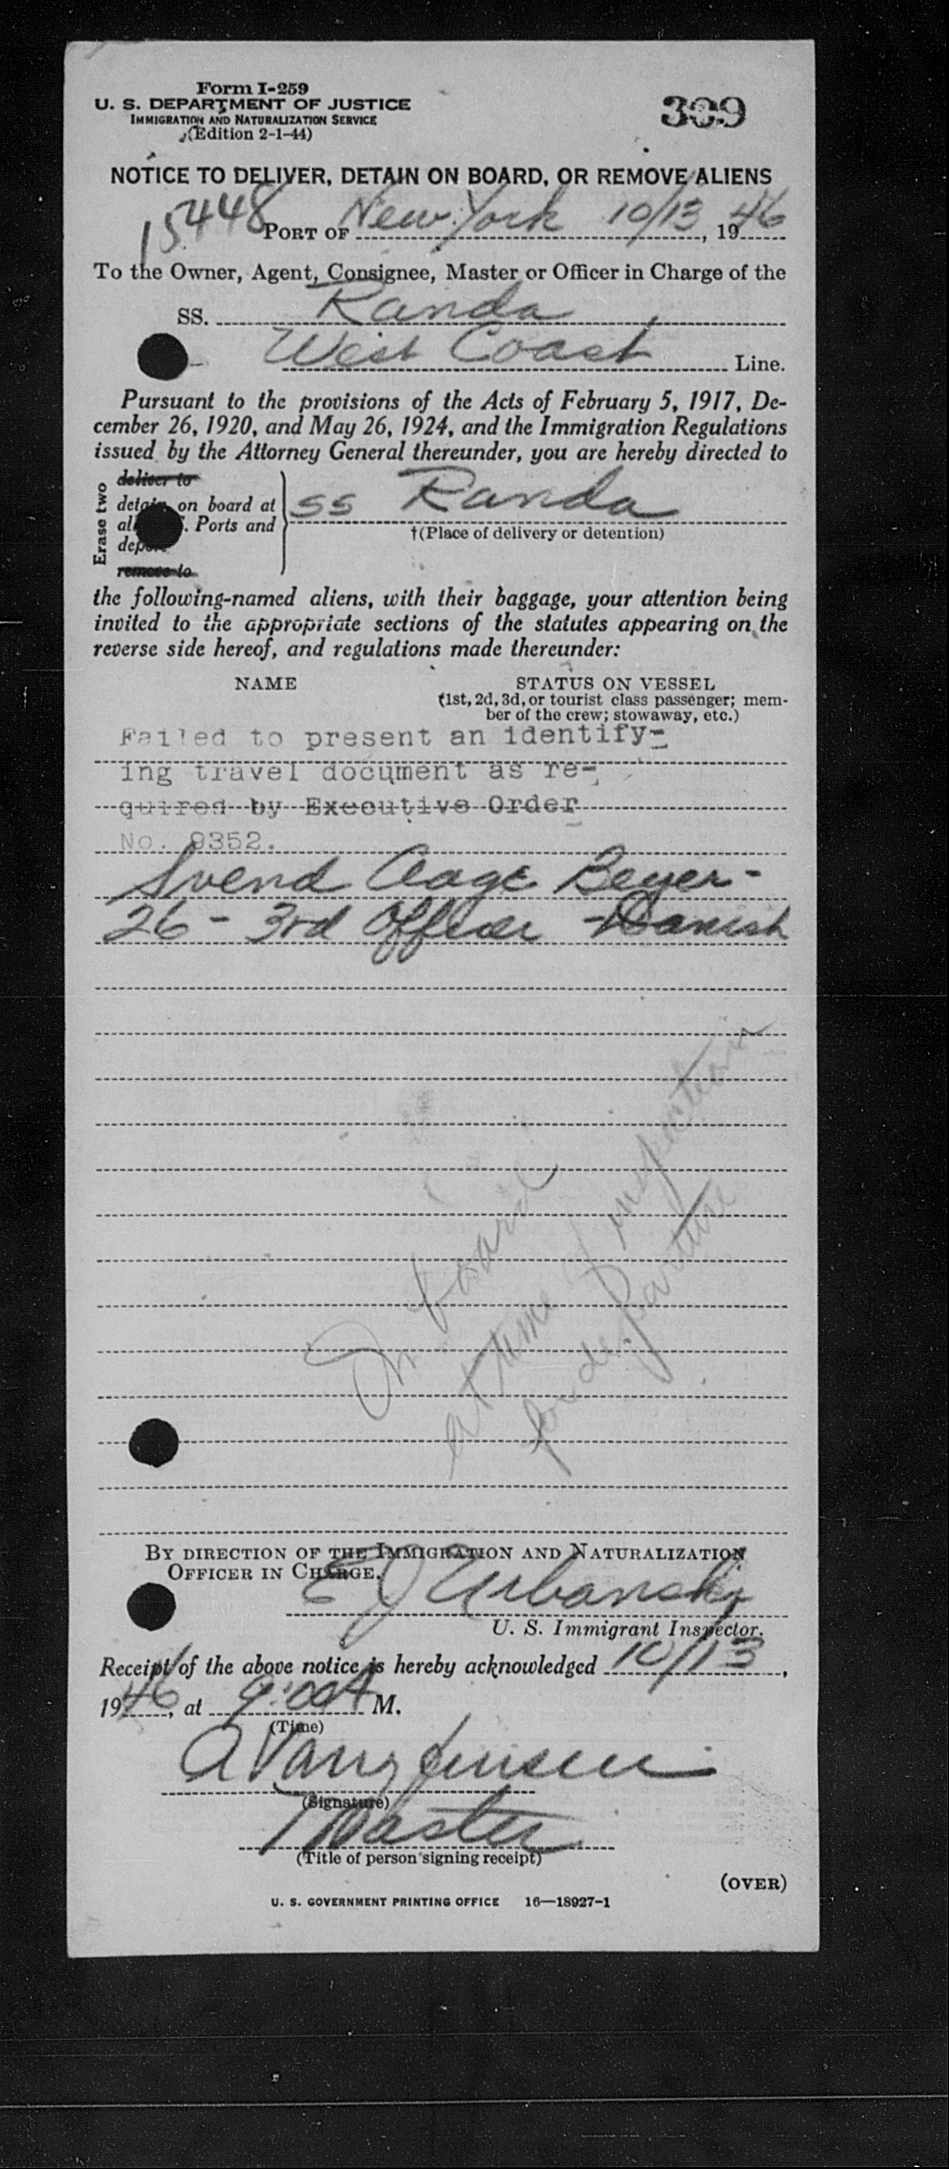 Form I-259
U. S. DEPARTMENT OF JUSTICE
IMMIGRATION AND NATURALIZATION SERVICE
(Edition 2-1-44)
309
NOTICE TO DELIVER, DETAIN ON BOARD, OR REMOVE ALIENS
15448
PORT OF New York 10/13, 1946
To the Owner, Agent, Consignee, Master or Officer in Charge of the
SS. Randa
West Coast Line.
Pursuant to the provisions of the Acts of February 5, 1917, De-
cember 26, 1920, and May 26, 1924, and the Immigration Regulations
issued by the Attorney General thereunder, you are hereby directed to
Erase two
deliver to
detain on board at
Ports and
remove to
SS Randa
†(Place of delivery or detention)
the following-named aliens, with their baggage, your attention being
invited to the appropriate sections of the statutes appearing on the
reverse side hereof, and regulations made thereunder:
NAME STATUS ON VESSEL
(1st, 2d, 3d, or tourist class passenger; mem-
ber of the crew; stowaway, etc.)
Failed to present an identify-
ing travel document as re-
quired by Executive Order
No. 9352.
Svend Aage Beyer -
26 - 3rd Officer - Danish
On board
at time of inspection
for departure
BY DIRECTION OF THE IMMIGRATION AND NATURALIZATION
OFFICER IN CHARGE.
E J Urbanski
U. S. Immigrant Inspector.
Receipt of the above notice is hereby acknowledged 10/13,
1946, at 9:00 A M.
(Time)
(Signature)
Master
(Title of person signing receipt)
(OVER)
U. S. GOVERNMENT PRINTING OFFICE 16—18927-1